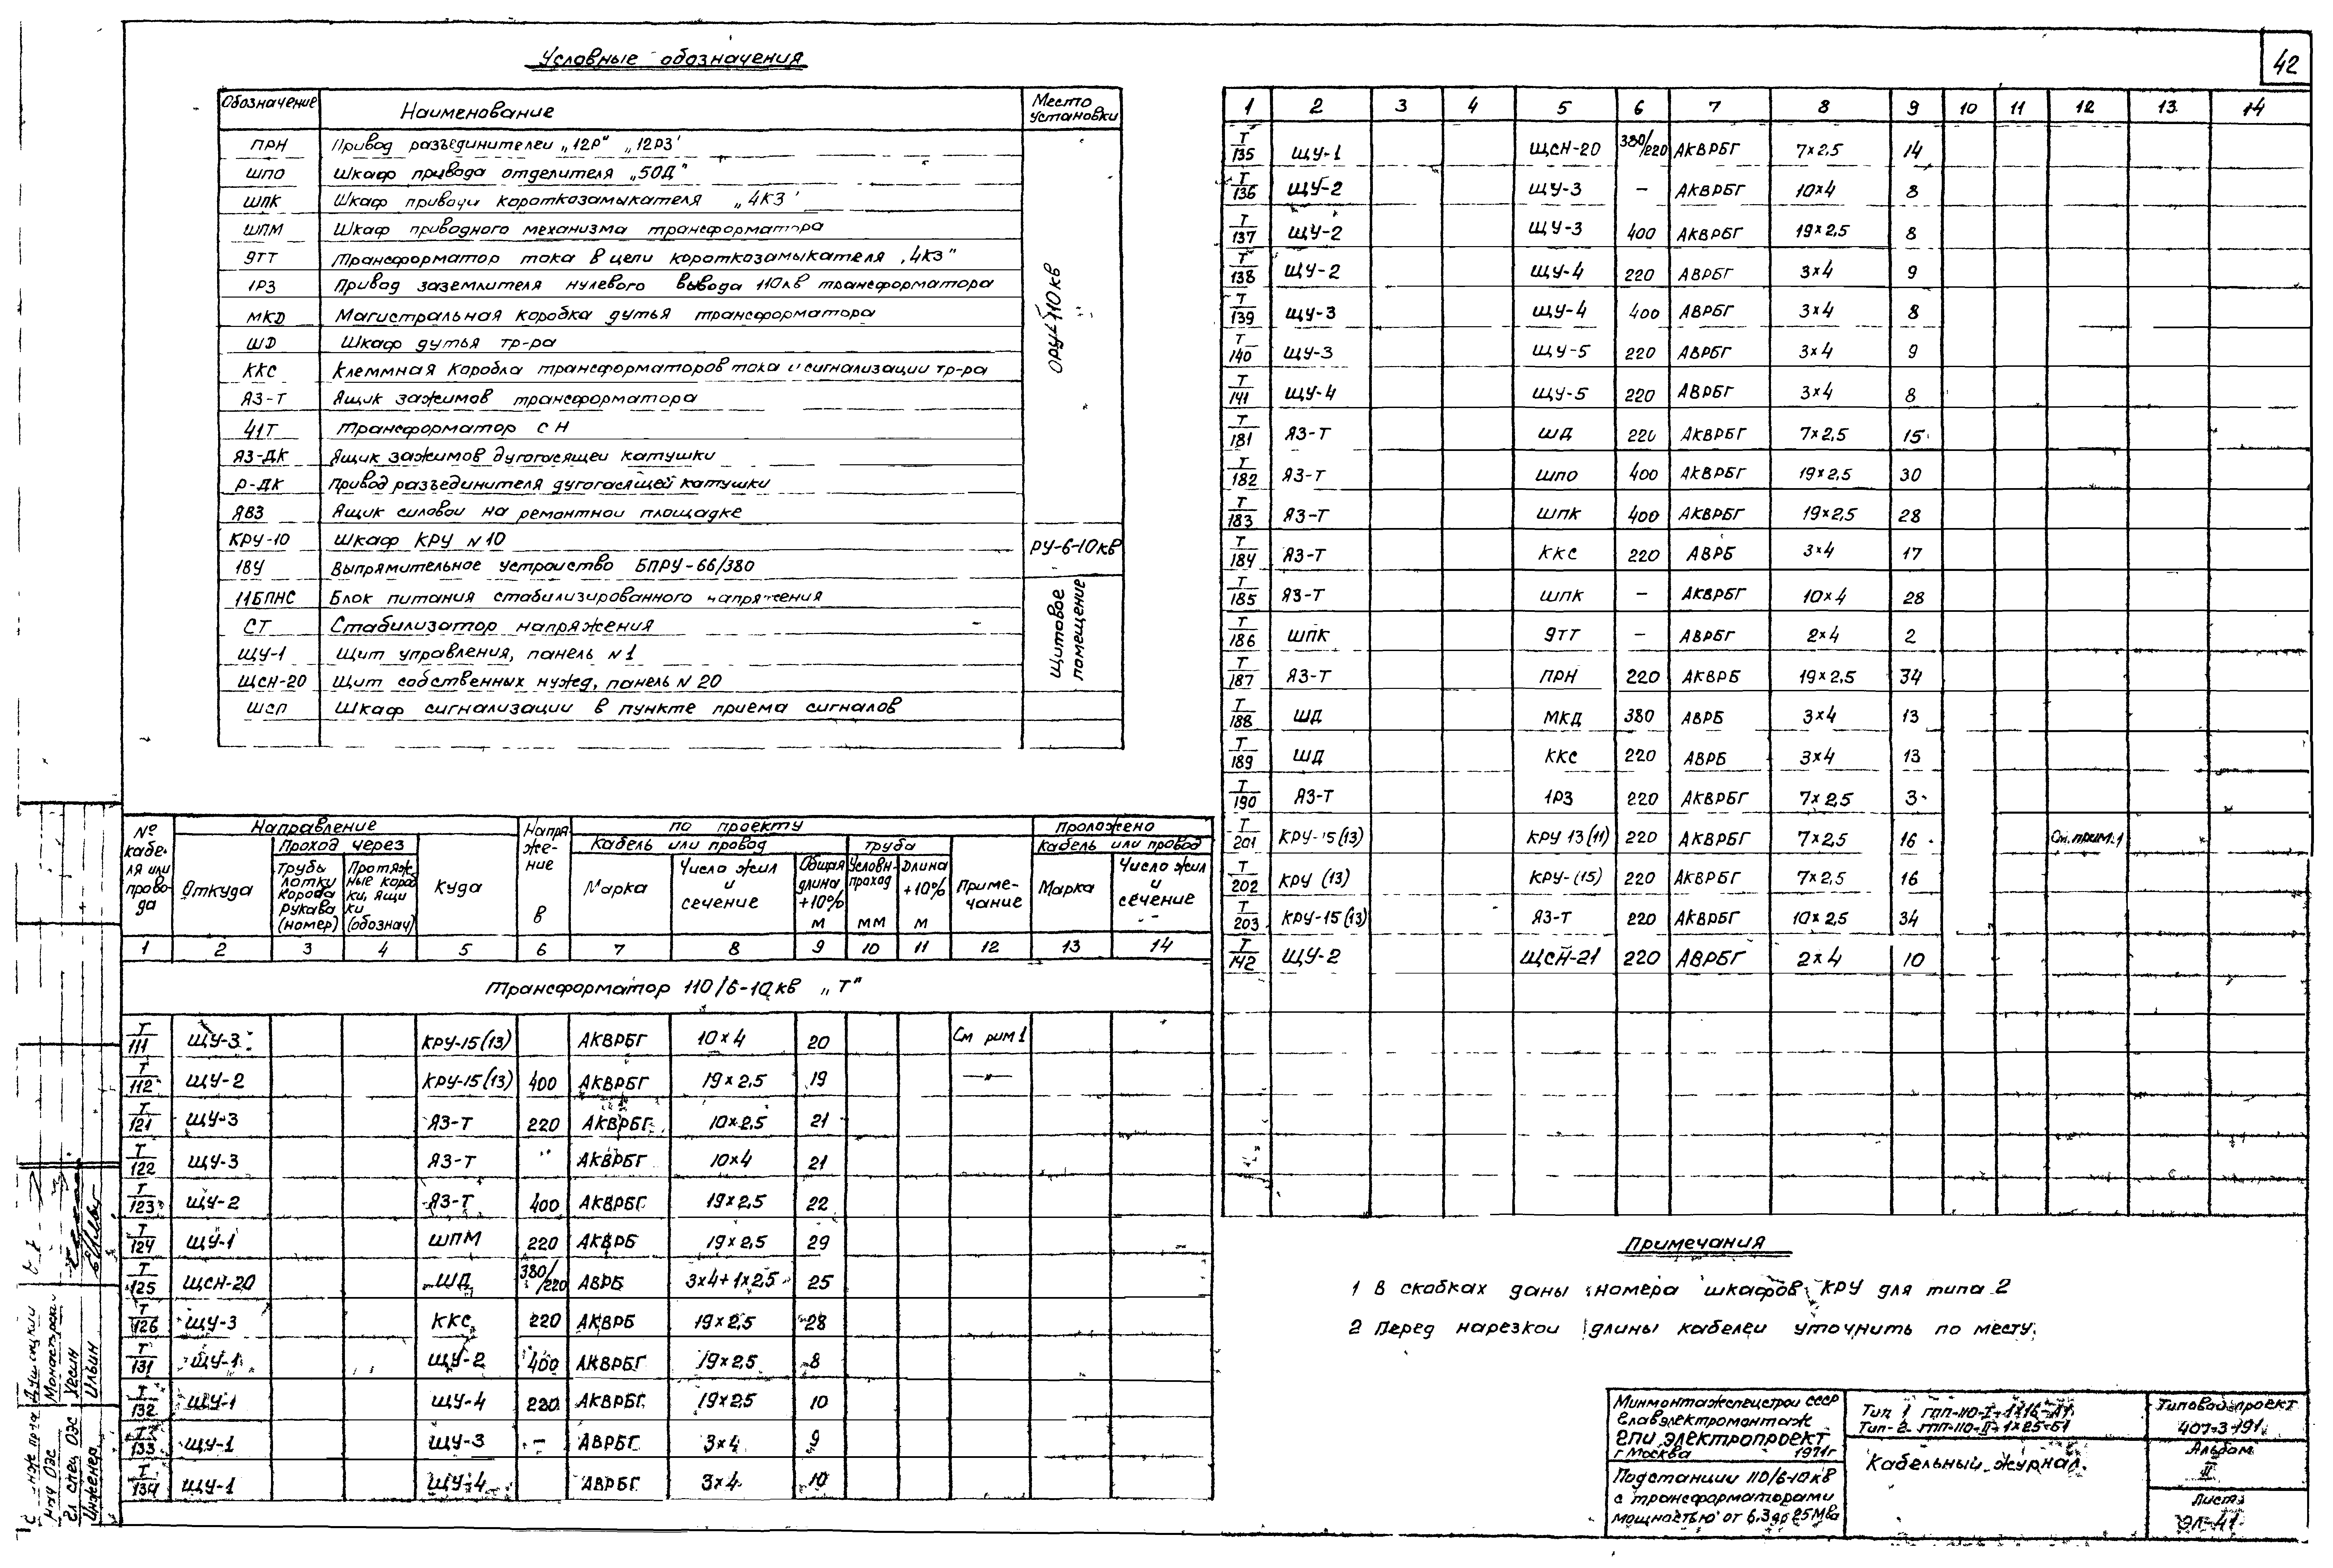 42
Условные обозначения
Обозначение Наименование Место установки
ПРН Привод разъединителей „12Р" „12РЗ'
ШПО Шкаф привода отделителя „50Д"
ШПК Шкаф привода короткозамыкателя „4КЗ'
ШПМ Шкаф приводного механизма трансформатора
9ТТ Трансформатор тока в цепи короткозамыкателя „4КЗ"
1РЗ Привод заземлителя нулевого вывода 110кв трансформатора
МКД Магистральная коробка дутья трансформатора
ШД Шкаф дутья тр-ра
ККС Клеммная коробка трансформаторов тока и сигнализации тр-ра
ЯЗ-Т Ящик зажимов трансформатора
41Т Трансформатор СН
ЯЗ-ДК Ящик зажимов дугогасящей катушки
Р-ДК Привод разъединителя дугогасящей катушки
ЯВЗ Ящик силовой на ремонтной площадке
ОРУ-110кв
КРУ-10 Шкаф КРУ №10 РУ-6-10кв
18У Выпрямительное устройство БПРУ-66/380
11БПНС Блок питания стабилизированного напряжения
СТ Стабилизатор напряжения
ЩУ-1 Щит управления, панель №1
ЩСН-20 Щит собственных нужд, панель №20
Щитовое помещение
ШСП Шкаф сигнализации в пункте приема сигналов
№ кабеля или провода
Направление
Откуда
Проход через
Трубы лотки короба рукава (номер)
Протяжные короб ки, ящи ки (обознач)
Куда
Напряжение в
по проекту
Кабель или провод
Марка
Число жил и сечение
Общая длина +10% м
Труба
Условн. проход мм
Длина +10% м
Примечание
Проложено
кабель или провод
Марка
Число жил и сечение
1 2 3 4 5 6 7 8 9 10 11 12 13 14
Трансформатор 110/6-10кв „Т"
Т/111 ЩУ-3 КРУ-15(13) АКВРБГ 10×4 20 См рим 1
Т/112 ЩУ-2 КРУ-15(13) 400 АКВРБГ 19×2,5 19 —"—
Т/121 ЩУ-3 ЯЗ-Т 220 АКВРБГ 10×2,5 21
Т/122 ЩУ-3 ЯЗ-Т " АКВРБГ 10×4 21
Т/123 ЩУ-2 ЯЗ-Т 400 АКВРБГ 19×2,5 22
Т/124 ЩУ-1 ШПМ 220 АКВРБ 19×2,5 29
Т/125 ЩСН-20 ШД 380/220 АВРБ 3×4+1×2,5 25
Т/126 ЩУ-3 ККС 220 АКВРБ 19×2,5 28
Т/131 ЩУ-1 ЩУ-2 400 АКВРБГ 19×2,5 8
Т/132 ЩУ-1 ЩУ-4 220 АКВРБГ 19×2,5 10
Т/133 ЩУ-1 ЩУ-3 — АВРБГ 3×4 9
Т/134 ЩУ-1 ЩУ-4 АВРБГ 3×4 10
1 2 3 4 5 6 7 8 9 10 11 12 13 14
Т/135 ЩУ-1 ЩСН-20 380/220 АКВРБГ 7×2,5 14
Т/136 ЩУ-2 ЩУ-3 — АКВРБГ 10×4 8
Т/137 ЩУ-2 ЩУ-3 400 АКВРБГ 19×2,5 8
Т/138 ЩУ-2 ЩУ-4 220 АВРБГ 3×4 9
Т/139 ЩУ-3 ЩУ-4 400 АВРБГ 3×4 8
Т/140 ЩУ-3 ЩУ-5 220 АВРБГ 3×4 9
Т/141 ЩУ-4 ЩУ-5 220 АВРБГ 3×4 8
Т/181 ЯЗ-Т ШД 220 АКВРБГ 7×2,5 15
Т/182 ЯЗ-Т ШПО 400 АКВРБГ 19×2,5 30
Т/183 ЯЗ-Т ШПК 400 АКВРБГ 19×2,5 28
Т/184 ЯЗ-Т ККС 220 АВРБ 3×4 17
Т/185 ЯЗ-Т ШПК — АКВРБГ 10×4 28
Т/186 ШПК 9ТТ — АВРБГ 2×4 2
Т/187 ЯЗ-Т ПРН 220 АКВРБ 19×2,5 34
Т/188 ШД МКД 380 АВРБ 3×4 13
Т/189 ШД ККС 220 АВРБ 3×4 13
Т/190 ЯЗ-Т 1РЗ 220 АКВРБГ 7×2,5 3
Т/201 КРУ-15(13) КРУ 13(11) 220 АКВРБГ 7×2,5 16 См. прим. 1
Т/202 КРУ (13) КРУ-(15) 220 АКВРБГ 7×2,5 16
Т/203 КРУ-15(13) ЯЗ-Т 220 АКВРБГ 10×2,5 34
Т/142 ЩУ-2 ЩСН-21 220 АВРБГ 2×4 10
Примечания
1 В скобках даны номера шкафов КРУ для типа 2
2 Перед нарезкой длины кабелей уточнить по месту.
Минмонтажспецстрой СССР
Главэлектромонтаж
ГПИ Электропроект
г Москва 1971г
Подстанции 110/6-10кв
с трансформаторами
мощностью от 6,3 до 25Мва
Тип 1 ГПП-110-I-1×16-А1
Тип-2 ГПП-110-II-1×25-Б1
Кабельный журнал.
Типовой проект
407-3-191
Альбом
II
Лист
ЭЛ-41
Нач ОЭС
Гл спец ОЭС Хесин
Инженер Ильин